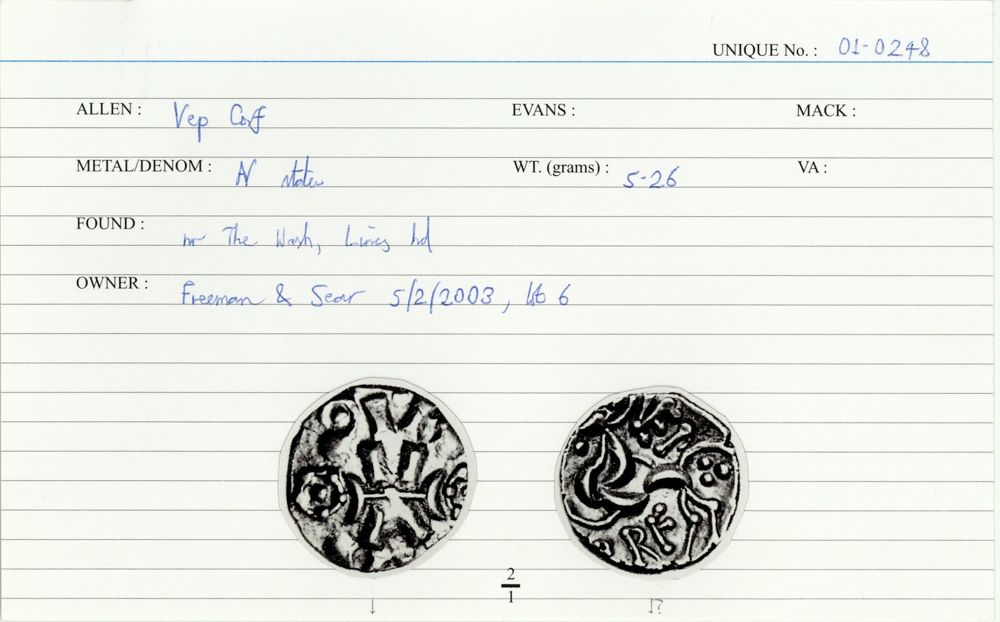 UNIQUE No. : 01-0248
ALLEN : Vep Corf EVANS : MACK :
METAL/DENOM : N stater WT. (grams) : 5-26 VA :
FOUND : nr The Wash, Lincs
OWNER : Freeman & Sear 5/2/2003, 6
VEP
RF
2
1
↓ ↓?